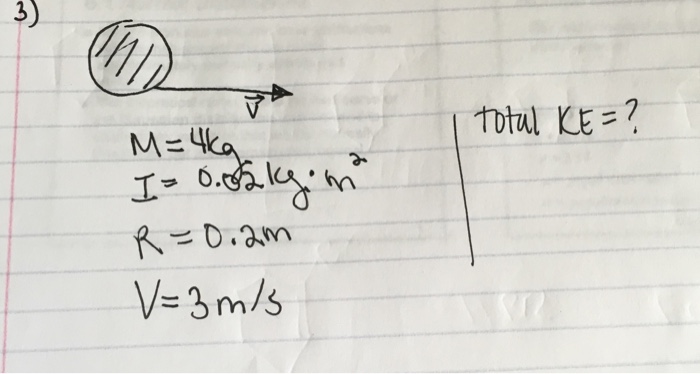 3)
V
M = 4kg
I = 0.02 kg · m²
R = 0.2m
V = 3 m/s
total KE = ?